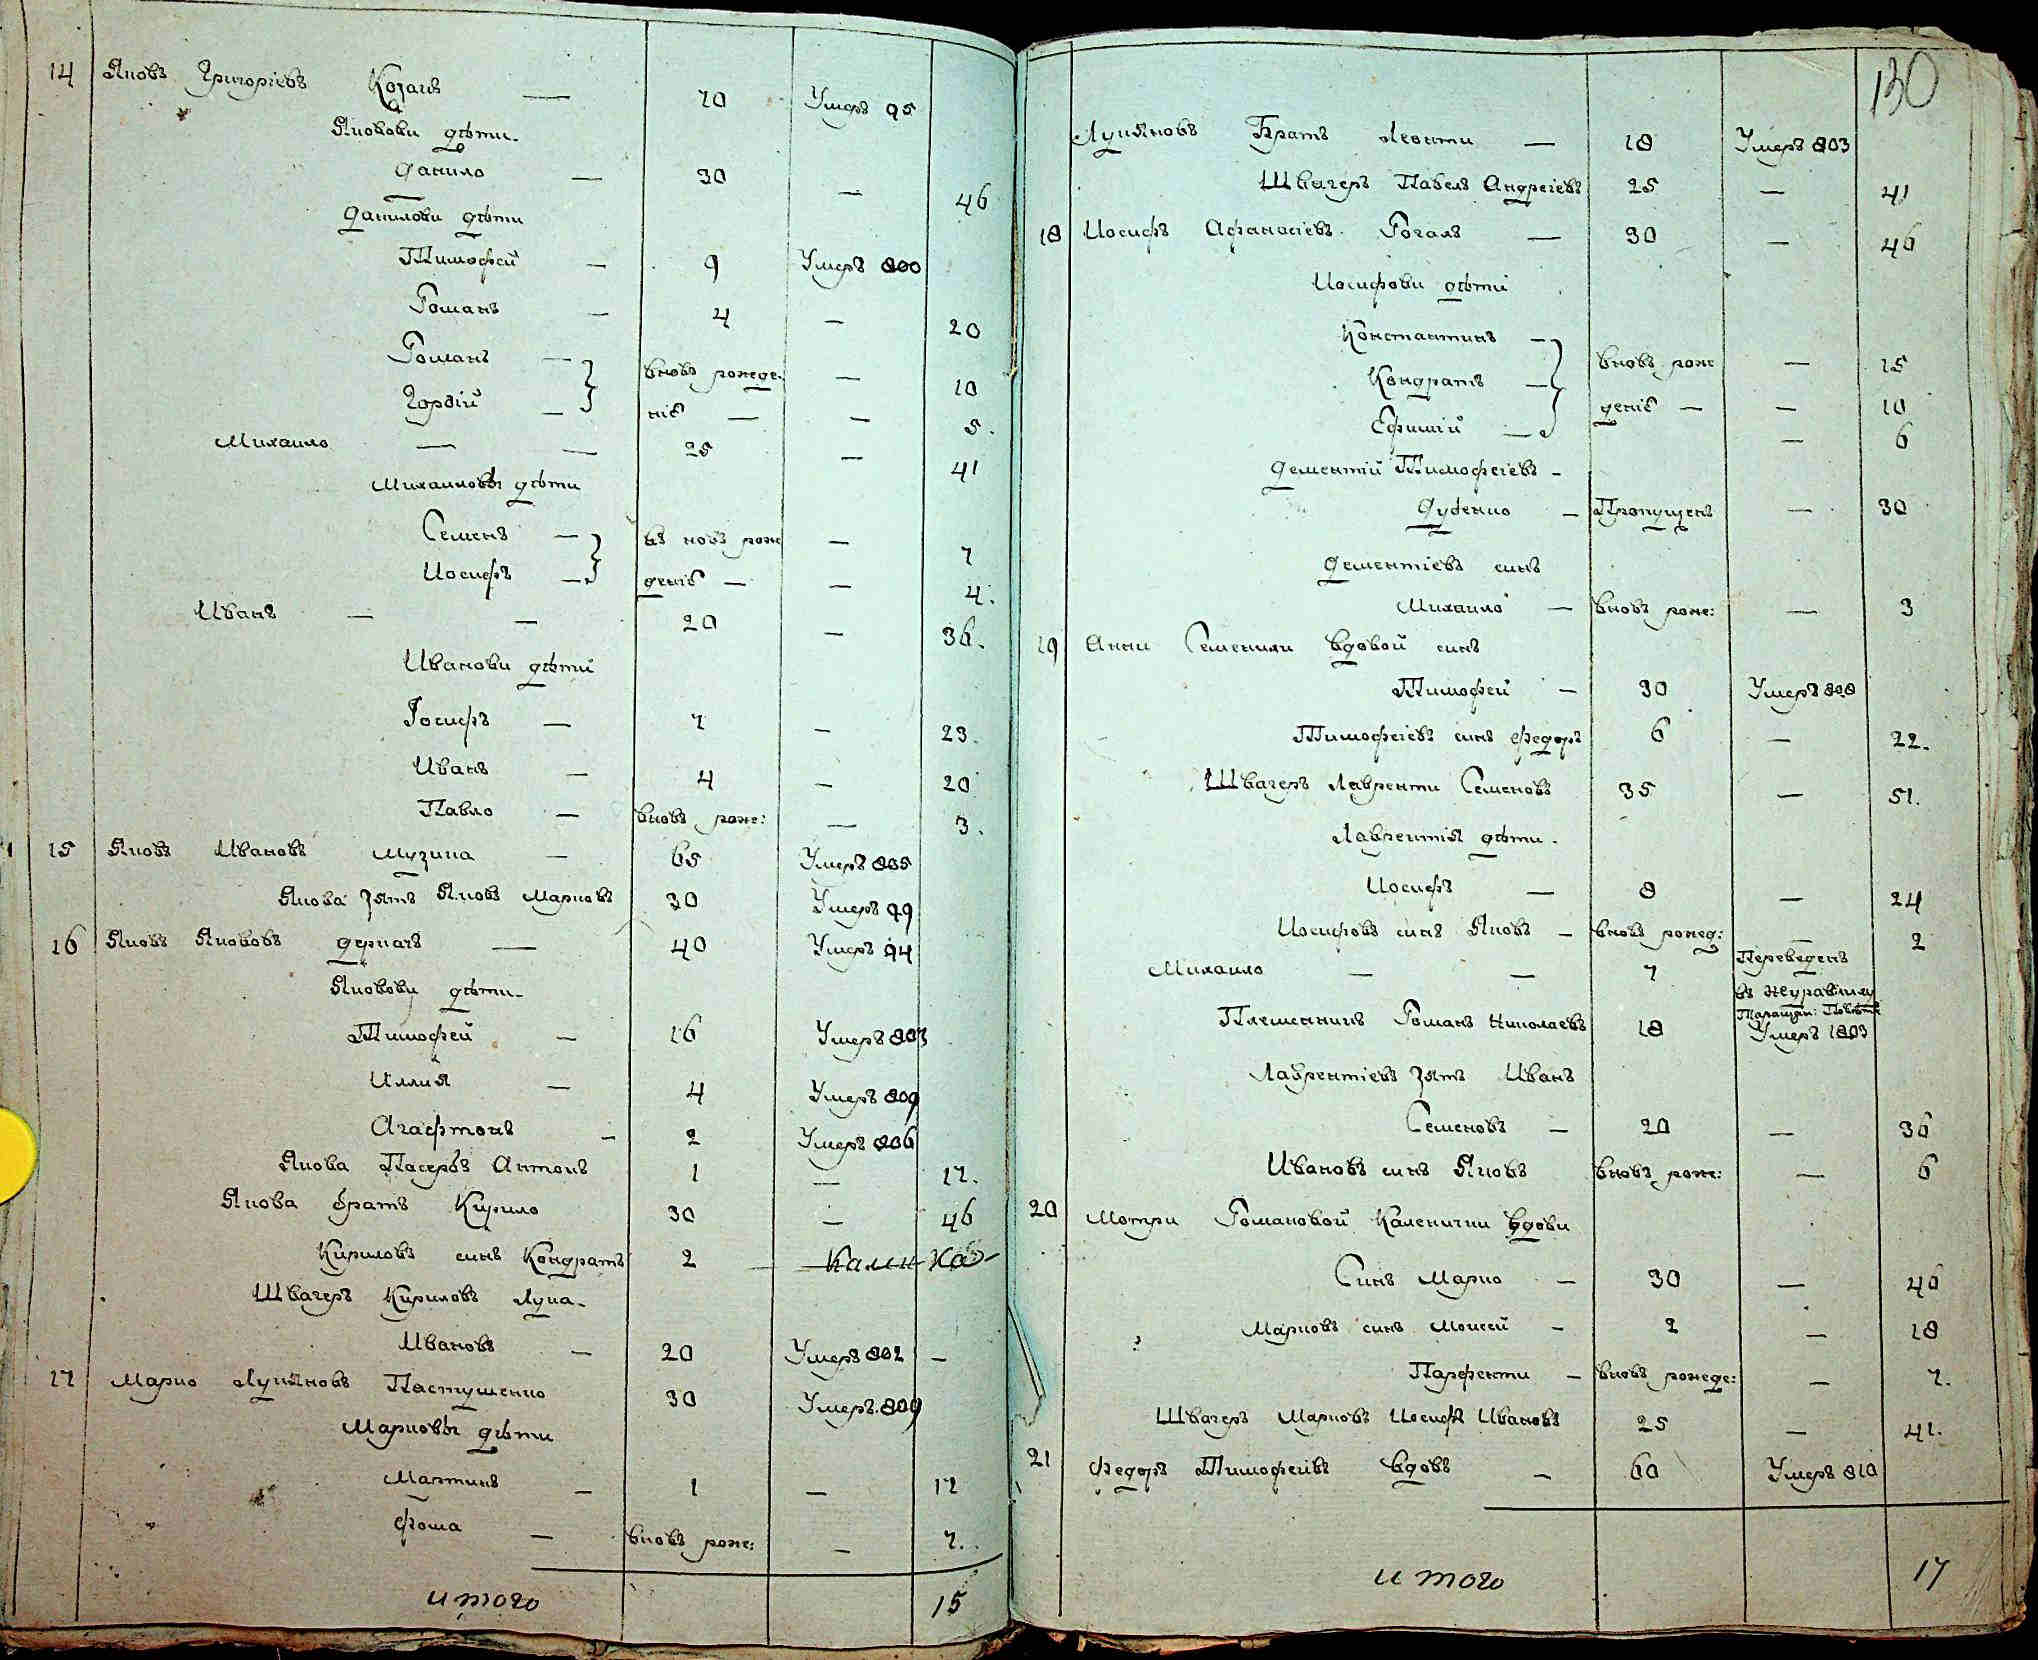 14 Яковъ Григоріевъ Козакъ — 70 Умеръ 95
Яковови дѣти.
Данило — 30 — 46
Данилови дѣти
Тимофей — 9 Умеръ 800
Романъ — 4 — 20
Романъ — вновь рожде: — 10
Гордій — ніе — — 5.
Михаило — — 25 — 41
Михаиловы дѣти
Семенъ — въ новъ рож — 7
Иосифъ — деніе — — 4.
Иванъ — — 20 — 36.
Иванови дѣти
Іосифъ — 7 — 23.
Иванъ — 4 — 20
Павло — вновь рож: — 3.
15 Яковъ Ивановъ Музика — 65 Умеръ 805
Якова зять Яковъ Марковъ 30 Умеръ 99
16 Яковъ Якововъ Деркачъ — 40 Умеръ 94
Яковови дѣти.
Тимофей — 16 Умеръ 803
Иллія — 4 Умеръ 809
Агафтонъ — 2 Умеръ 806
Якова Пасербъ Антонъ 1 — 17.
Якова братъ Кирило 30 — 46
Кириловъ синъ Кондратъ 2
Швагеръ Кириловъ Лука.
Ивановъ — 20 Умеръ 802 —
17 Марко Лукяновъ Пастушенко 30 Умеръ 809
Марковы дѣти
Мартинъ — 1 — 17
Фома — вновь рож: — 7.
итого 15
130
Лукяновъ Братъ Леонти — 18 Умеръ 803
Швагеръ Павелъ Андреіевъ 25 — 41
18 Иосифъ Афанасіевъ Рогаль — 30 — 46
Иосифови дѣти
Константинъ — вновь рож — 15
Кондратъ — деніе — — 10
Ефимій — — 6
Дементій Тимофеіевъ —
Дуденко — Пропущенъ — 30
Дементіевъ синъ
Михаило — вновь рож: — 3
19 Анни Семенихи вдовой синъ
Тимофей — 30 Умеръ 808
Тимофеіевъ синъ Федоръ 6 — 22.
Швагеръ Лавренти Семеновъ 35 — 51.
Лаврентія дѣти.
Иосифъ — 8 — 24
Иосифовъ синъ Яковъ — вновь рожд: — 2
Михаило — — 7 Переведенъ
въ Журавлиху
Таращан: Повѣта
Племенникъ Романъ Николаевъ 18 Умеръ 1803
Лаврентіевъ зять Иванъ
Семеновъ — 20 — 36
Ивановъ синъ Яковъ вновь рож: — 6
20 Мотри Романовой Каленички вдови
Синъ Марко — 30 — 46
Марковъ синъ Моисей — 2 — 18
Парфенти — вновь рожде: — 7.
Швагеръ Марковъ Иосифъ Ивановъ 25 — 41.
21 Федоръ Тимофеивъ вдовъ — 60 Умеръ 810
итого 17